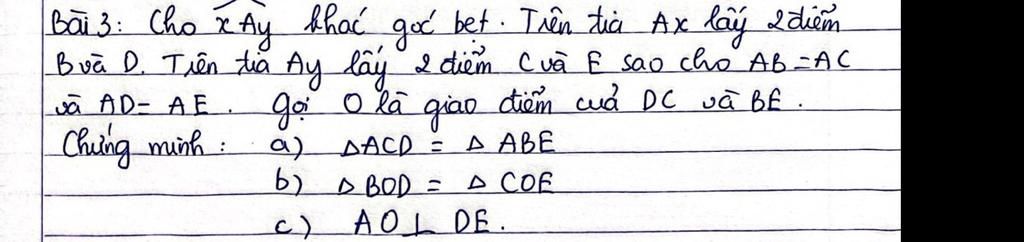 Bài 3: Cho xAy khác góc bẹt. Trên tia Ax lấy 2 điểm
B và D. Trên tia Ay lấy 2 điểm C và E sao cho AB = AC
và AD = AE. Gọi O là giao điểm của DC và BE.
Chứng minh: a) ΔACD = Δ ABE
b) Δ BOD = Δ COE
c) AO ⊥ DE.